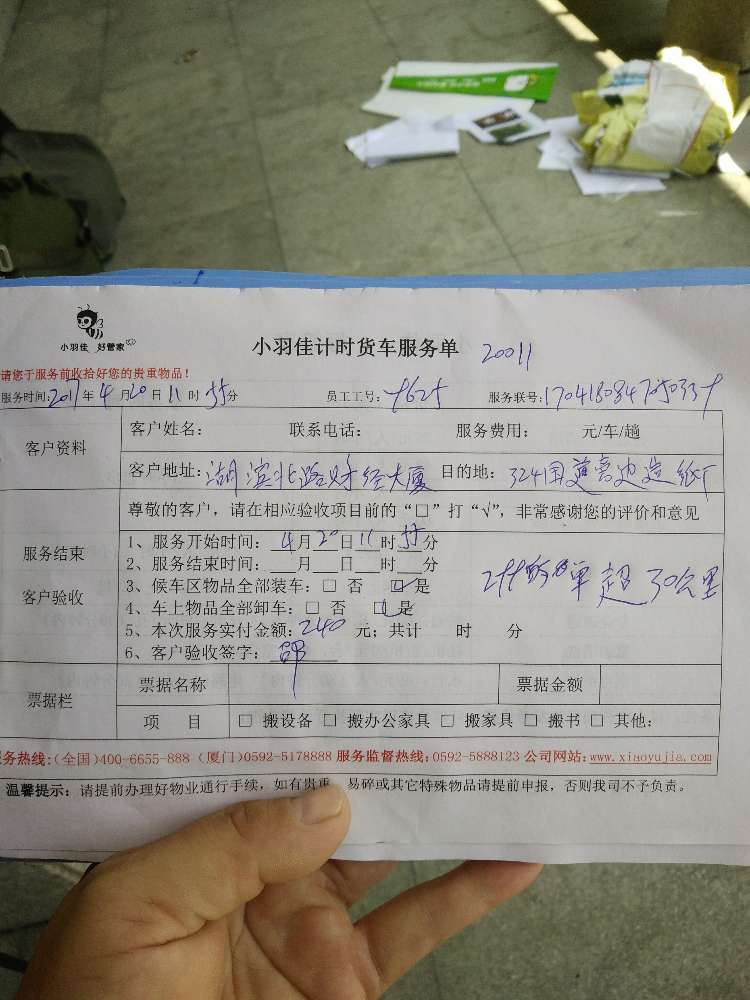 小羽佳 好管家
小羽佳计时货车服务单 20011
请您于服务前收拾好您的贵重物品!
服务时间: 2017年4月20日11时55分 员工工号: 9625 服务联号:
客户资料
客户姓名: 联系电话: 服务费用: 元/车/趟
客户地址: 湖滨北路财经大厦 目的地: 324国道 边造纸厂
服务结束
客户验收
尊敬的客户，请在相应验收项目前的“□”打“√”，非常感谢您的评价和意见
1、服务开始时间: 4月20日11时55分
2、服务结束时间: 月 日 时 分
3、候车区物品全部装车: □ 否 ☑是
4、车上物品全部卸车: □ 否 ☑是
单超30公里
5、本次服务实付金额: 240 元; 共计 时 分
6、客户验收签字: 邵
票据栏
票据名称 票据金额
项 目 □ 搬设备 □ 搬办公家具 □ 搬家具 □ 搬书 □ 其他:
务热线:(全国)400-6655-888 (厦门)0592-5178888 服务监督热线: 0592-5888123 公司网站: www.xiaoyujia.com
温馨提示: 请提前办理好物业通行手续，如有贵重、易碎或其它特殊物品请提前申报，否则我司不予负责。